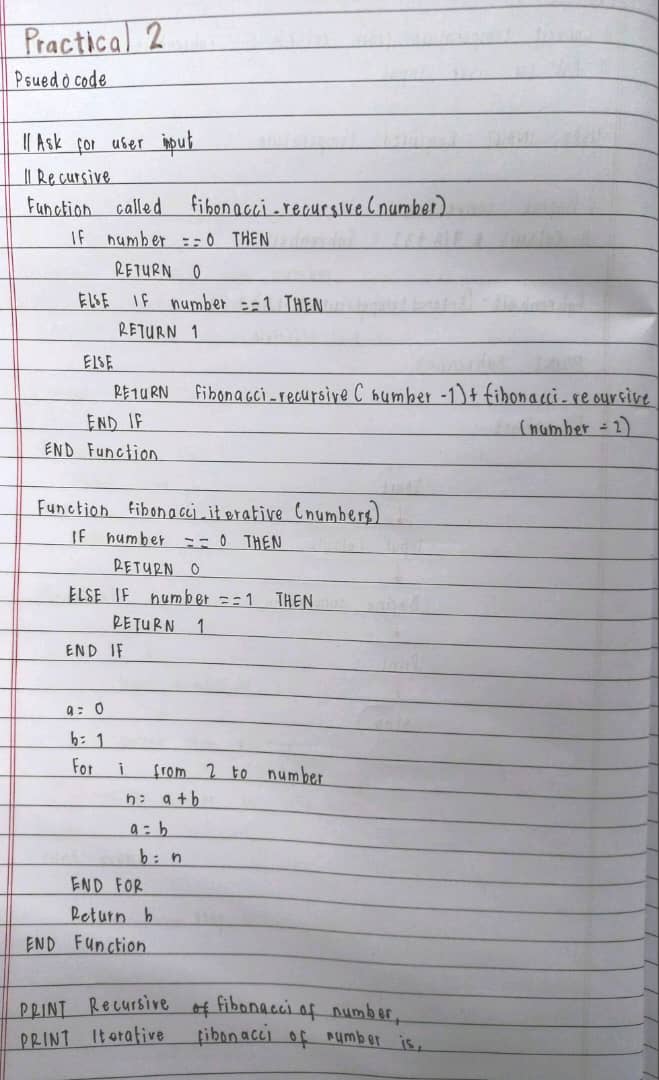 Practical 2
Psuedocode
// Ask for user input
// Recursive
Function called fibonacci_recursive (number)
IF number == 0 THEN
RETURN 0
ELSE IF number == 1 THEN
RETURN 1
ELSE
RETURN fibonacci_recursive ( number -1) + fibonacci_recursive
(number - 2)
END IF
END Function
Function fibonacci_iterative (numbers)
IF number == 0 THEN
RETURN 0
ELSE IF number == 1 THEN
RETURN 1
END IF
a = 0
b = 1
For i from 2 to number
n = a + b
a = b
b = n
END FOR
Return b
END Function
PRINT Recursive of fibonacci of number,
PRINT Iterative fibonacci of number is,